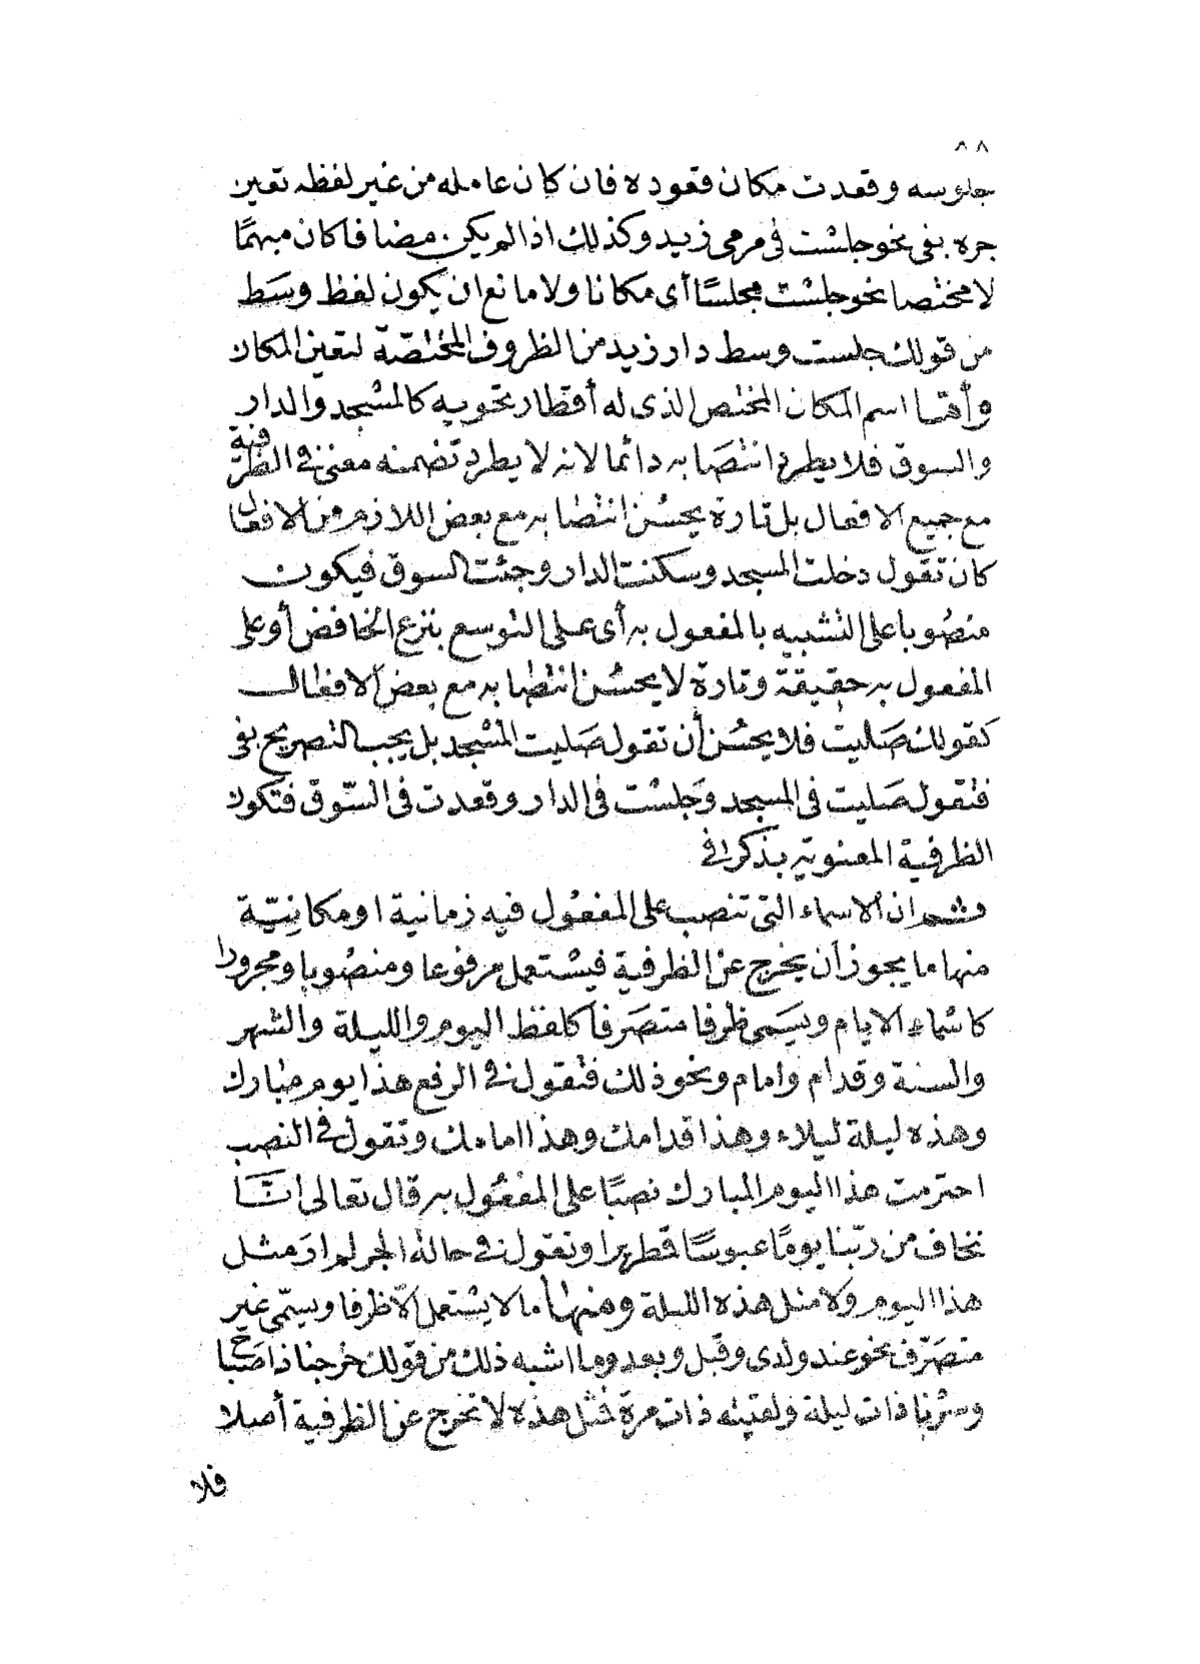 ٨٨
جلوسه وقعدت مكان قعوده فان كان عامله من غير لفظه تعين
جره بفى نحو جلست فى مرمى زيد وكذلك اذا لم يكن مضافا كان مبهمًا
لا مختصا نحو جلست مجلسًا أى مكانا ولا مانع ان يكون لفظ وسَط
من قولك جلست وسط دار زيد من الظروف المختصّة لتعين المكان
وأمّا اسم المكان المختص الذى له أقطار تحويه كالمسجد والدار
والسوق فلا يطرد انتصابه دائما لانه لا يطرد تضمنه معنى فى الظرفية
مع جميع الافعال بل تارة يحسُن انتصابه مع بعض اللازم من الافعال
كان تقول دخلت المسجد وسكنت الدار وجئت السوق فيكون
منصُوبا على التشبيه بالمفعول به أى على التوسع بنزع الخافض أو على
المفعول به حقيقة وتارة لا يحسُن انتصابه مع بعض الافعال
كقولك صَليت فلا يحسُن أن تقول صَليت المسْجد بل يجب التصريح بفى
فتقول صَليت فى المسجد وَجلسْت فى الدار وقعدت فى السّوق فتكون
الظرفية المعنوية بذكر فى
وثم ان الاسماء التى تنصب على المفعُول فيه زمانية او مكانِيّة
منها ما يجوز أن يخرج عن الظرفية فيسْتعمل مرفوعا ومنصُوبا ومجرورا
كاسْماء الايام ويسَمى ظرفا متصَرفا كلفظ اليوم والليلة والشهر
والسنة وقدام وامام ونحو ذلك فتقول فى الرفع هذا يوم مبارك
وهذه ليلة ليلاء وهذا قدامك وهذا امامك وتقول فى النصب
احترمت هذا اليوم المبارك نصبًا على المفعُول به قال تعالى انّا
نخاف من ربّنا يومًا عبوسًا قمطريرا وتقول فى حالة الجر لم ارَ مثل
هذا اليوم ولا مثل هذه الليلة ومنها ما لا يسْتعمل الّا ظرفا ويسمّى غير
متصَرّف نحو عند ولدى وقبل وبعد وما اشبه ذلك من قولك خرجنا ذا صَبَاح
وسْرنا ذات ليلة ولقيته ذات مرة فمثل هذه لا تخرج عن الظرفية أصلا
فلا